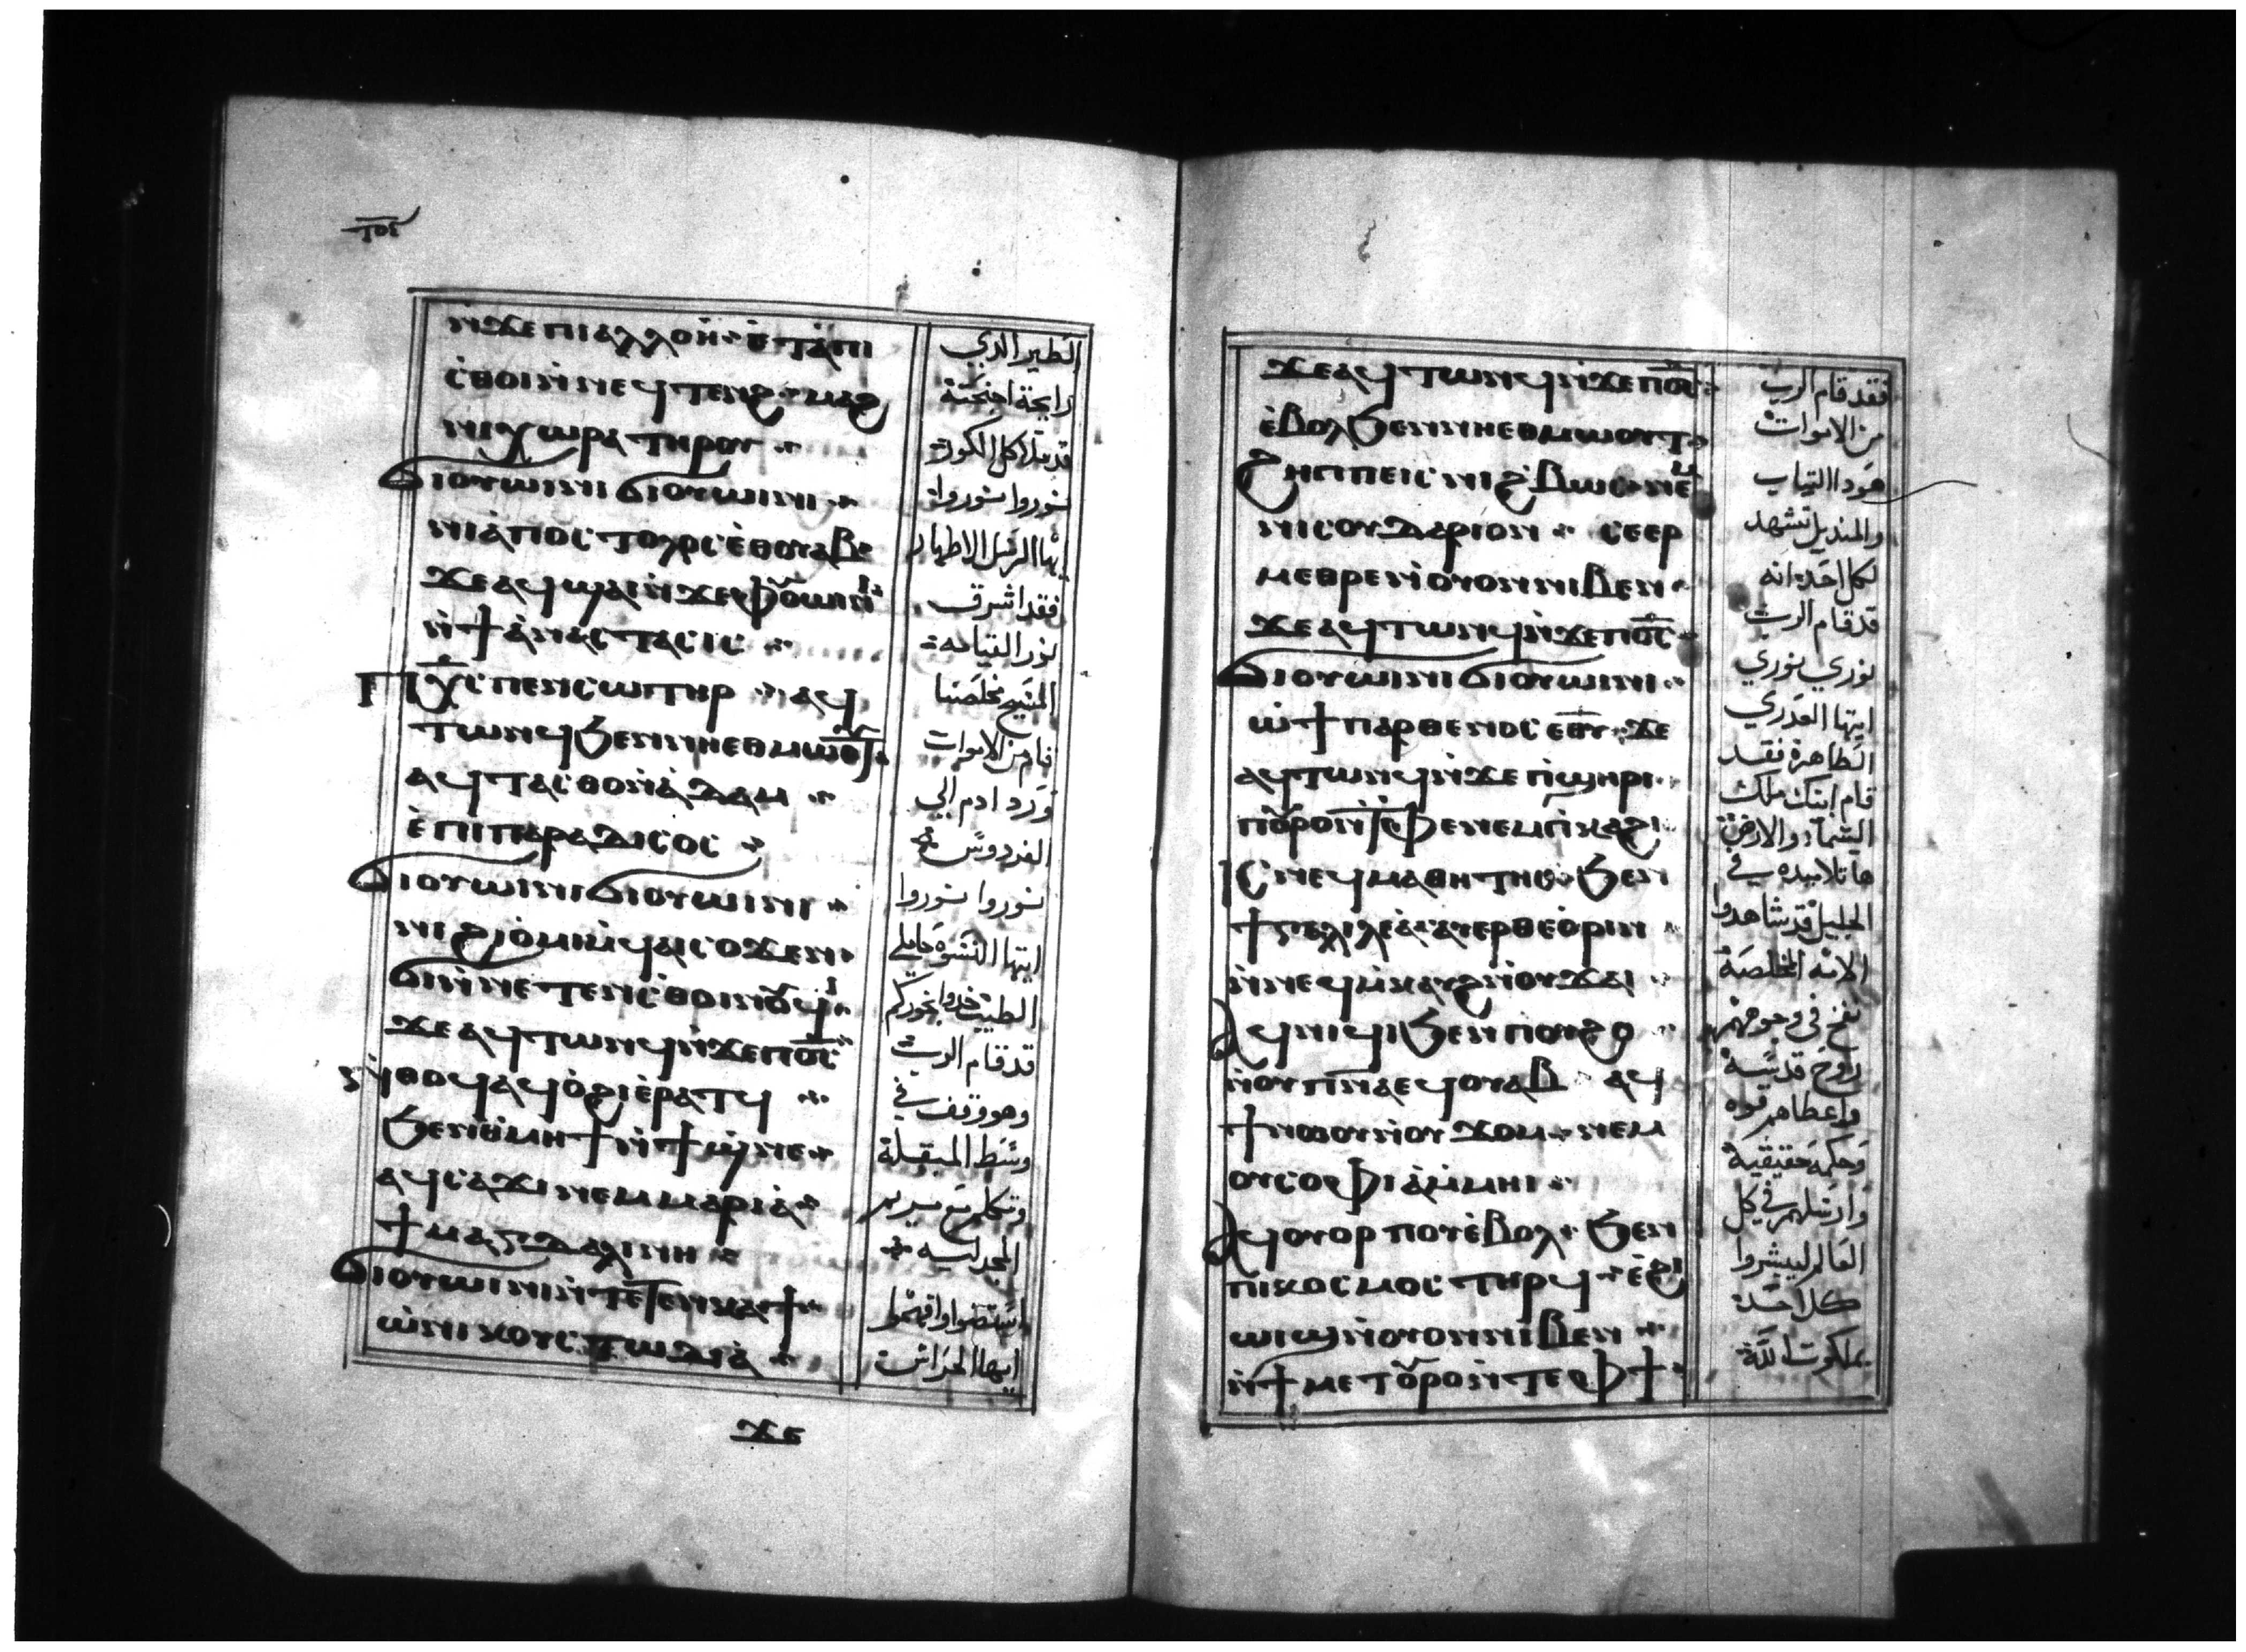 ⲛ̀ϫⲉⲡⲓⲁⲗⲗⲟⲏ ⲉ̀ⲧⲁ̀ⲡⲓ
ⲥ̀ⲑⲟⲓⲛ̀ⲛⲉϥⲧⲉⲛϩ ⲙⲁϩ
ⲛⲓⲭⲱⲣⲁ ⲧⲏⲣⲟⲩ
ϭⲓⲟⲩⲱⲓⲛⲓ ϭⲓⲟⲩⲱⲓⲛⲓ
ⲛⲓⲁ̀ⲡⲟⲥⲧⲟⲗⲟⲥ ⲉ̀ⲑⲟⲩⲁⲃ
ϫⲉⲁϥϣⲁⲓⲛ̀ϫⲉⲫⲟⲩⲱⲓⲛⲓ
ⲛ̀ϯⲁ̀ⲛⲁⲥⲧⲁⲥⲓⲥ
ⲡⲭ̅ⲥ̅ ⲡⲉⲛⲥⲱⲧⲏⲣ ⲁϥ
ⲧⲱⲛϥϧⲉⲛⲛⲏⲉⲑⲙⲱⲟⲩⲧ
ⲁϥⲧⲁⲥⲑⲟⲛ̀ⲁ̀ⲇⲁⲙ
ⲉ̀ⲡⲓⲡⲁⲣⲁⲇⲓⲥⲟⲥ
ϭⲓⲟⲩⲱⲓⲛⲓ ϭⲓⲟⲩⲱⲓⲛⲓ
ⲛⲓϩⲓⲟ̀ⲙⲓⲛ̀ϥⲁⲓⲥⲟϫⲉⲛ
ϭⲓⲛ̀ⲛⲉⲧⲉⲛⲥ̀ⲑⲟⲓⲛⲟⲩϥⲓ
ϫⲉⲁϥⲧⲱⲛϥⲛ̀ϫⲉⲡⲟ̅ⲥ̅
ⲛ̀ⲑⲟϥⲁϥⲟ̀ϩⲓⲉ̀ⲣⲁⲧϥ
ϧⲉⲛⲑ̀ⲙⲏϯⲛ̀ϯϣ̀ⲛⲉ
ⲁϥⲥⲁϫⲓ ⲛⲉⲙⲙⲁⲣⲓⲁ̀
ϯⲙⲁⲅⲇⲁⲗⲓⲛⲏ
ϭⲓⲟⲩⲱⲓⲛⲓ ⲛ̀ⲧⲉⲧⲉⲛⲕⲁϯ
ⲱ̀ⲛⲓⲕⲟⲩⲥⲧⲱⲇⲓⲁ̀
ϫⲉ
الطير الدي
رايحة اجنحته
قد ملا كل الكورة
نوروا نوروا
ايها الرسل الاطهار
فقد اشرق
نور القيامة
المسيح مخلصنا
قام من الاموات
ورد ادم الي
الفردوس
نوروا نوروا
ايتها النسوة حاملي
الطيب خدوا بخوركم
قد قام الرب
وهو وقف في
وسط المبقلة
وتكلم مع مريم
المجدلية
استضوا وافهموا
ايها الحراس
ϫⲉⲁϥⲧⲱⲛϥⲛ̀ϫⲉⲡⲟ̅ⲥ̅
ⲉ̀ⲃⲟⲗϧⲉⲛⲛⲏⲉⲑⲙⲱⲟⲩⲧ
ϩⲏⲡⲡⲉⲓⲥ ⲛⲓϩⲃⲱⲥ ⲛⲉⲙ
ⲛⲓⲥⲟⲩⲇⲁⲣⲓⲟⲛ ⲥⲉⲉⲣ
ⲙⲉⲑⲣⲉⲛ̀ⲟⲩⲟⲛⲛⲓⲃⲉⲛ
ϫⲉⲁϥⲧⲱⲛϥⲛ̀ϫⲉⲡⲟ̅ⲥ̅
ϭⲓⲟⲩⲱⲓⲛⲓ ϭⲓⲟⲩⲱⲓⲛⲓ
ⲱ̀ϯⲡⲁⲣⲑⲉⲛⲟⲥ ⲉⲑⲩ ϫⲉ
ⲁϥⲧⲱⲛϥⲛ̀ϫⲉⲡⲉϣⲏⲣⲓ
ⲡⲟⲩⲣⲟⲛ̀ⲧⲫⲉⲛⲉⲙⲡ̀ⲕⲁϩⲓ
ⲓⲥ ⲛⲉϥⲙⲁⲑⲏⲧⲏⲥ ϧⲉⲛ
ϯⲅⲁⲗⲓⲗⲉⲁ̀ ⲁⲩⲉⲣⲑⲉⲟ̀ⲣⲓⲛ
ⲛ̀ⲛⲉϥⲙ̀ⲕⲁⲩϩⲛ̀ⲟⲩϫⲁⲓ
ⲁϥⲛⲓϥⲓϧⲉⲛⲡⲟⲩϩⲟ
ⲛ̀ⲟⲩⲡⲛ̅ⲁ̅ⲉϥⲟⲩⲁⲃ ⲁϥ
ϯⲛⲱⲟⲩⲛ̀ⲟⲩϫⲟⲙ ⲛⲉⲙ
ⲟⲩⲥⲟⲫⲓⲁ̀ⲙ̀ⲙⲏⲓ
ⲁϥⲟⲩⲟⲣⲡⲟⲩⲉ̀ⲃⲟⲗ ϧⲉⲛ
ⲡⲓⲕⲟⲥⲙⲟⲥ ⲧⲏⲣϥ ⲉ̀ϩⲓ
ⲱⲓϣⲛ̀ⲟⲩⲟⲛⲛⲓⲃⲉⲛ
ⲛ̀ϯⲙⲉⲧⲟⲩⲣⲟⲛ̀ⲧⲉⲫϯ
فقد قام الرب
من الاموات
هودا التياب
والمنديل تشهد
لكل احد انه
قد قام الرب
نوري نوري
ايتها العدري
الطاهرة فقد
قام ابنك ملك
السماء والارض
ها تلاميده في
الجليل قد شاهدوا
الامه المخلصة
نفخ في وجوههم
روح قدسه
واعطاهم قوه
وحكمه حقيقية
وارسلهم في كل
العالم ليبشروا
كل احد
بملكوت الله